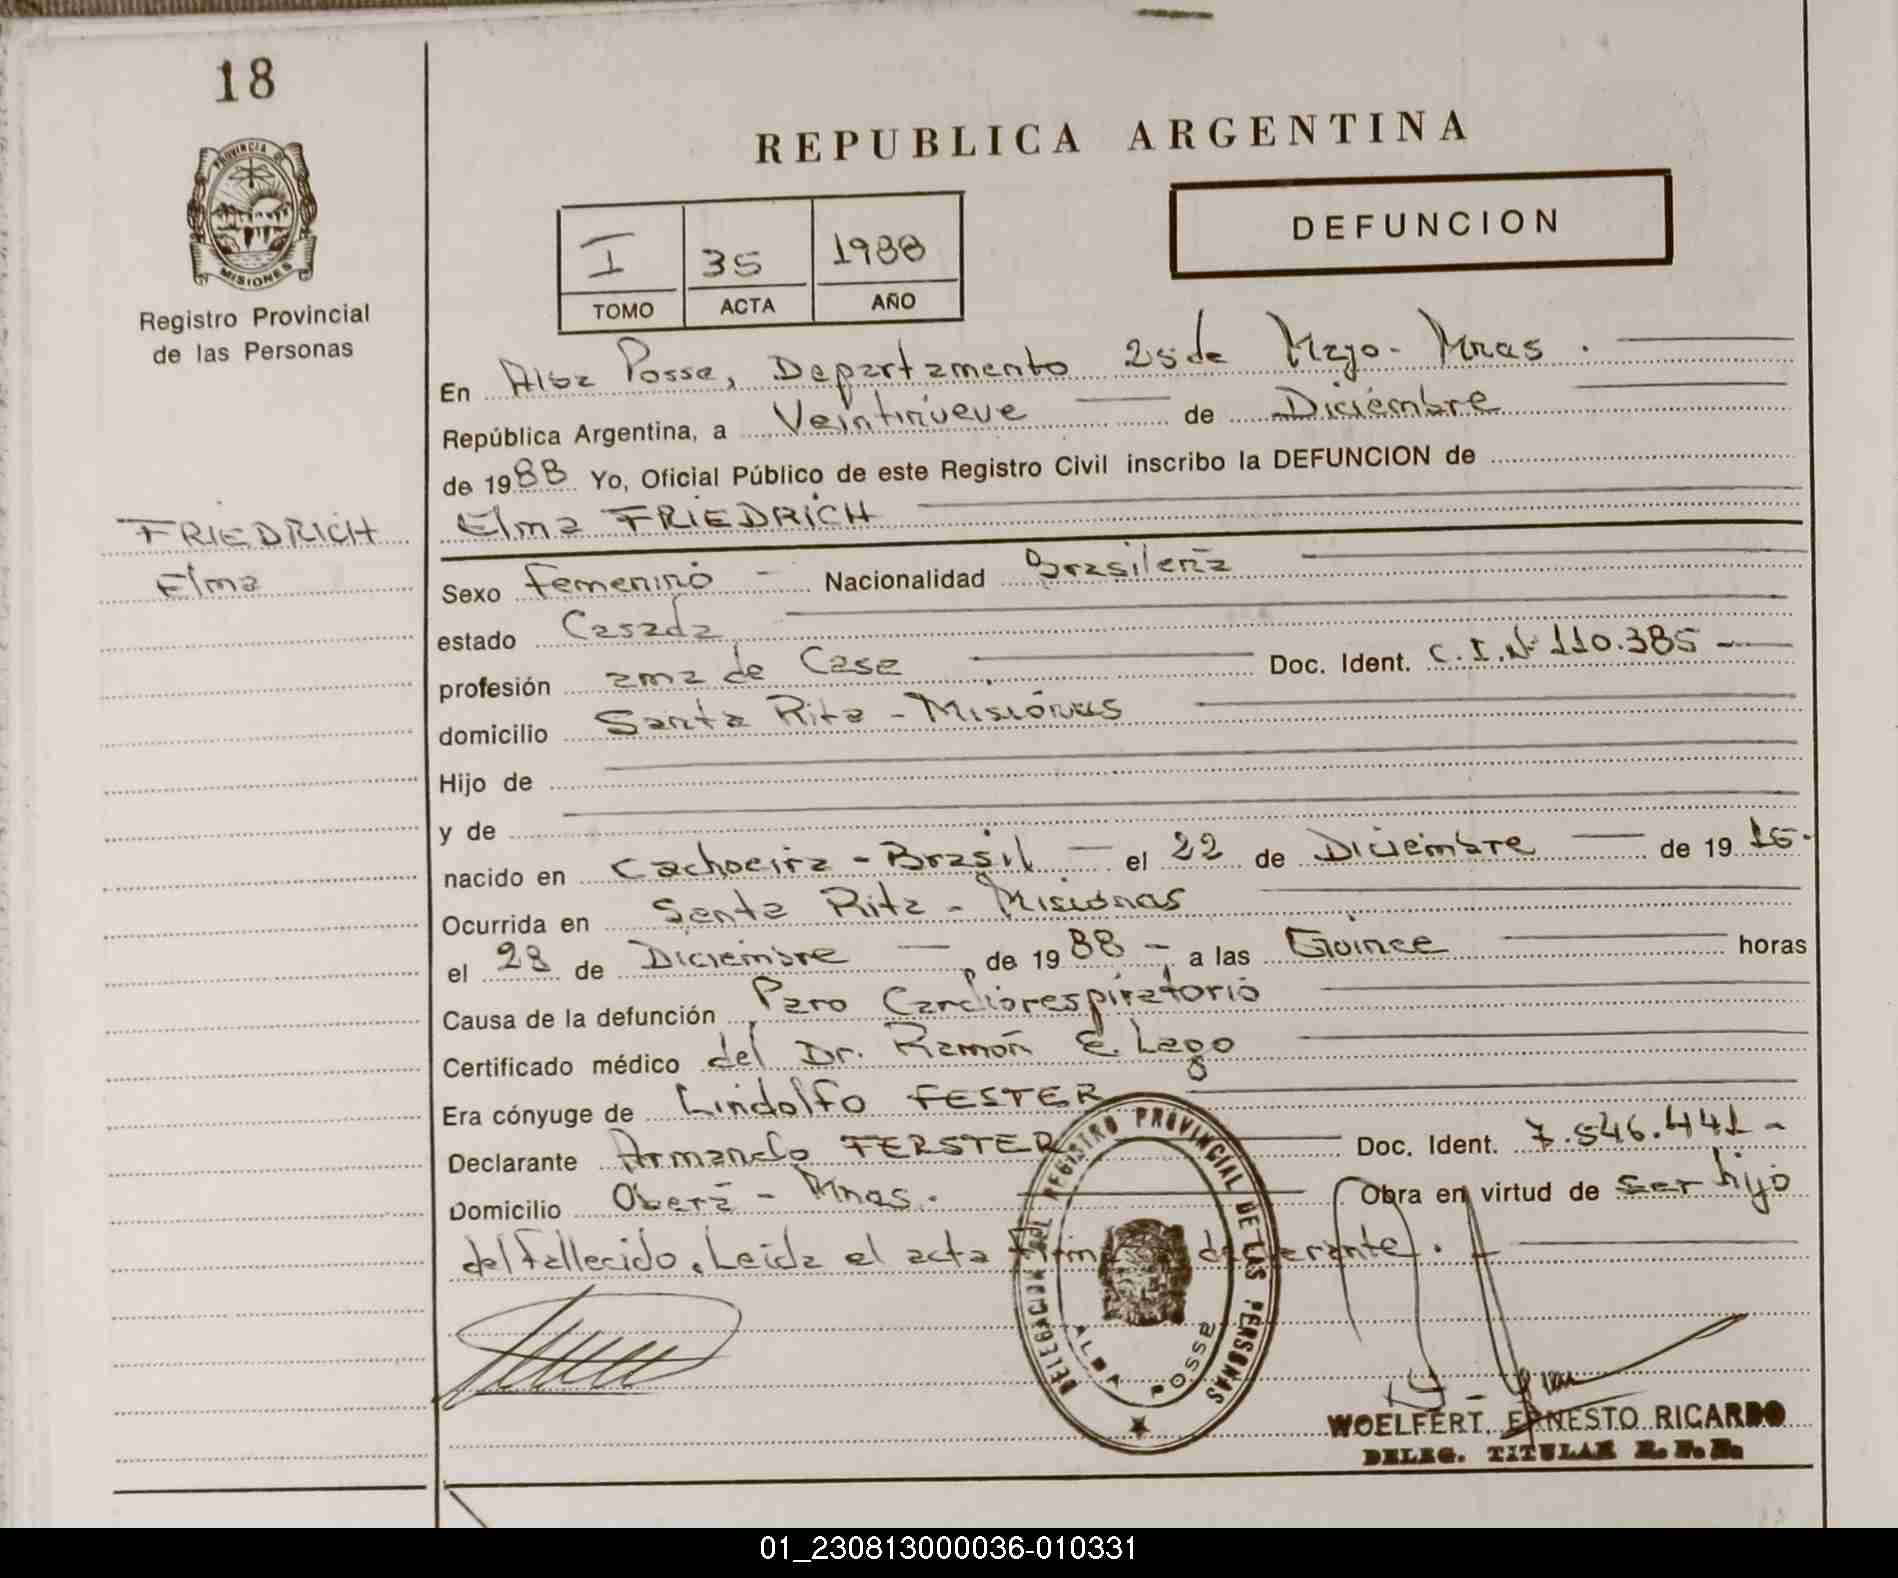 18
PROVINCIA DE
MISIONES
Registro Provincial
de las Personas
FRIEDRICH
Elma
REPUBLICA ARGENTINA
DEFUNCION
I 35 1988
TOMO ACTA AÑO
En Alba Posse, Departamento 25 de Mayo - Mnas.
República Argentina, a Veintinueve de Diciembre
de 1988 Yo, Oficial Público de este Registro Civil inscribo la DEFUNCION de
Elma FRIEDRICH
Sexo Femenino - Nacionalidad Brasileña
estado Casada
profesión ama de Casa Doc. Ident. C.I.Nº 110.385 -
domicilio Santa Rita - Misiones
Hijo de
y de
nacido en Cachoeira - Brasil - el 22 de Diciembre - de 19 16.
Ocurrida en Santa Rita - Misiones
el 28 de Diciembre - de 19 88 - a las Quince horas
Causa de la defunción Paro Cardiorespiratorio
Certificado médico del Dr. Ramón E. Lago
Era cónyuge de Lindolfo FESTER
Declarante Armando FERSTER Doc. Ident. 7.546.441 -
Domicilio Oberá - Mnas. Obra en virtud de ser hijo
del fallecido. Leída el acta declarante.
DELEGACION DEL REGISTRO PROVINCIAL DE LAS PERSONAS
ALBA POSSE
WOELFERT, ERNESTO RICARDO
DELEG. TITULAR R. P. P.
01_230813000036-010331